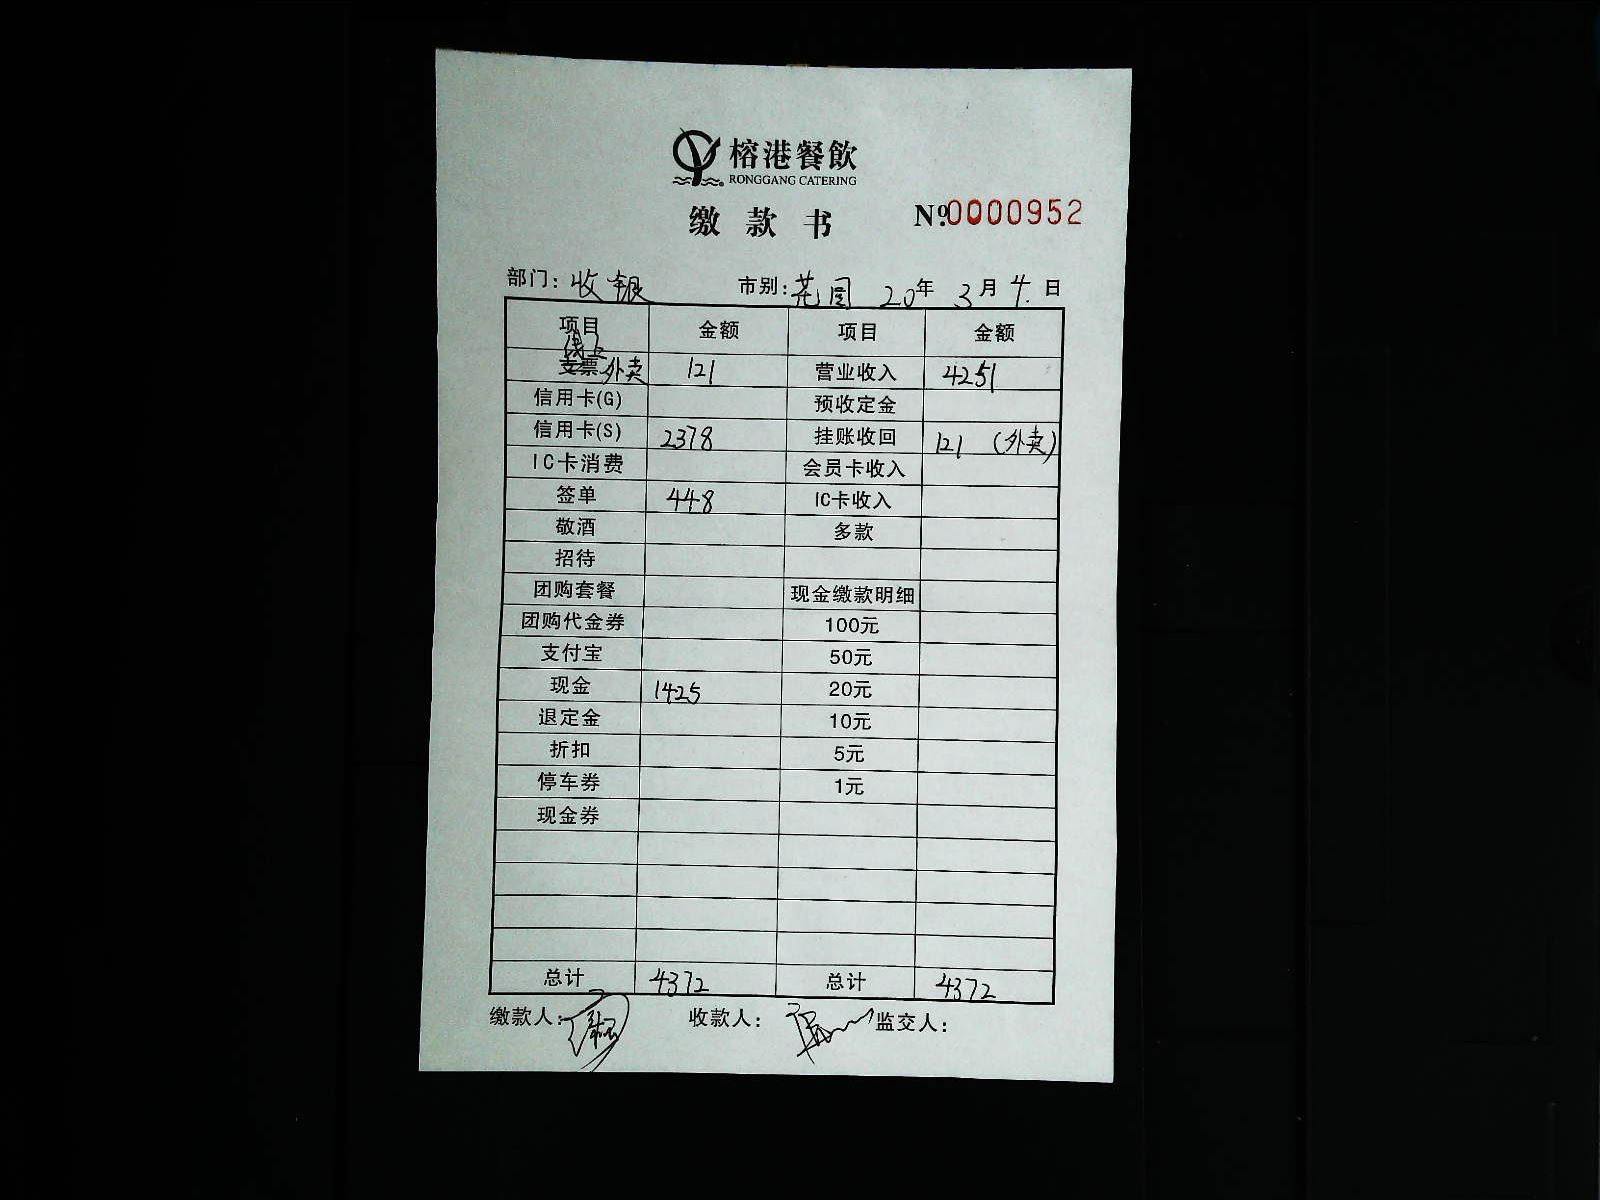 榕港餐飲
RONGGANG CATERING
缴款书
Nº.0000952
部门：收银 市别：花园 20年3月4日
项目 金额 项目 金额
线上
支票外卖 121 营业收入 4251
信用卡(G) 预收定金
信用卡(S) 2378 挂账收回 121（外卖）
IC卡消费 会员卡收入
签单 448 IC卡收入
敬酒 多款
招待
团购套餐 现金缴款明细
团购代金券 100元
支付宝 50元
现金 1425 20元
退定金 10元
折扣 5元
停车券 1元
现金券
总计 4372 总计 4372
缴款人： 收款人： 监交人：